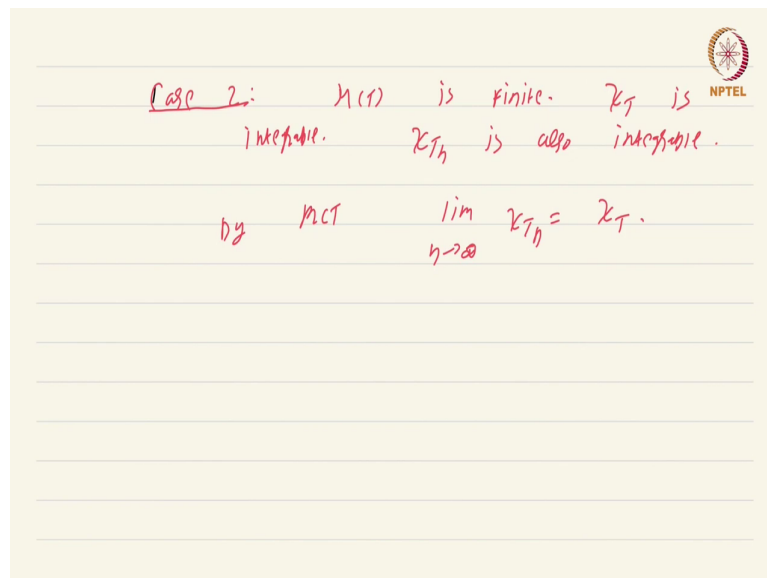 NPTEL
Case 2: μ(T) is finite. χ_T is
integrable. χ_{T_n} is also integrable.
By MCT lim_{n→∞} χ_{T_n} = χ_T.